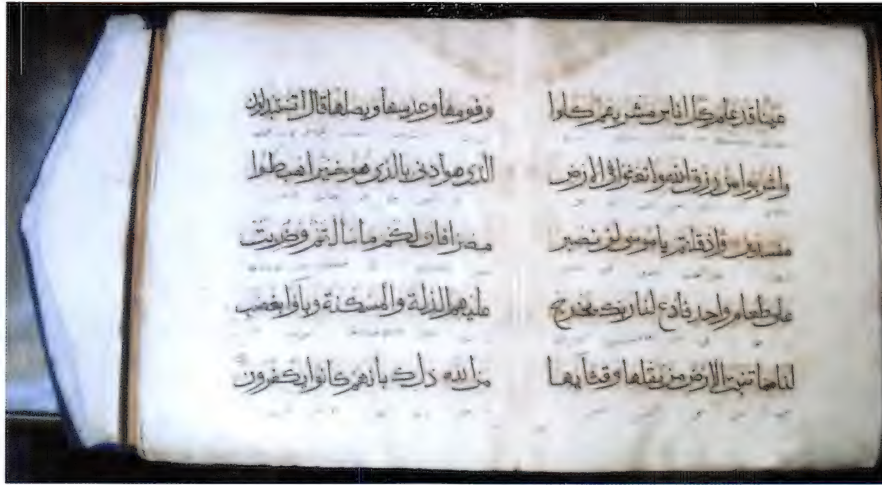 عينا قد علم كل اناس مشربهم كلوا
واشربوا من رزق الله ولا تعثوا في الارض
مفسدين واذ قلتم ياموسى لن نصبر
على طعام واحد فادع لنا ربك يخرج
لنا مما تنبت الارض من بقلها وقثايها
وفومها وعدسها وبصلها قال اتستبدلون
الذى هو ادنى بالذى هو خير اهبطوا
مصرا فان لكم ما سالتم وضربت
عليهم الذلة والمسكنة وباؤا بغضب
من الله ذلك بانهم كانوا يكفرون